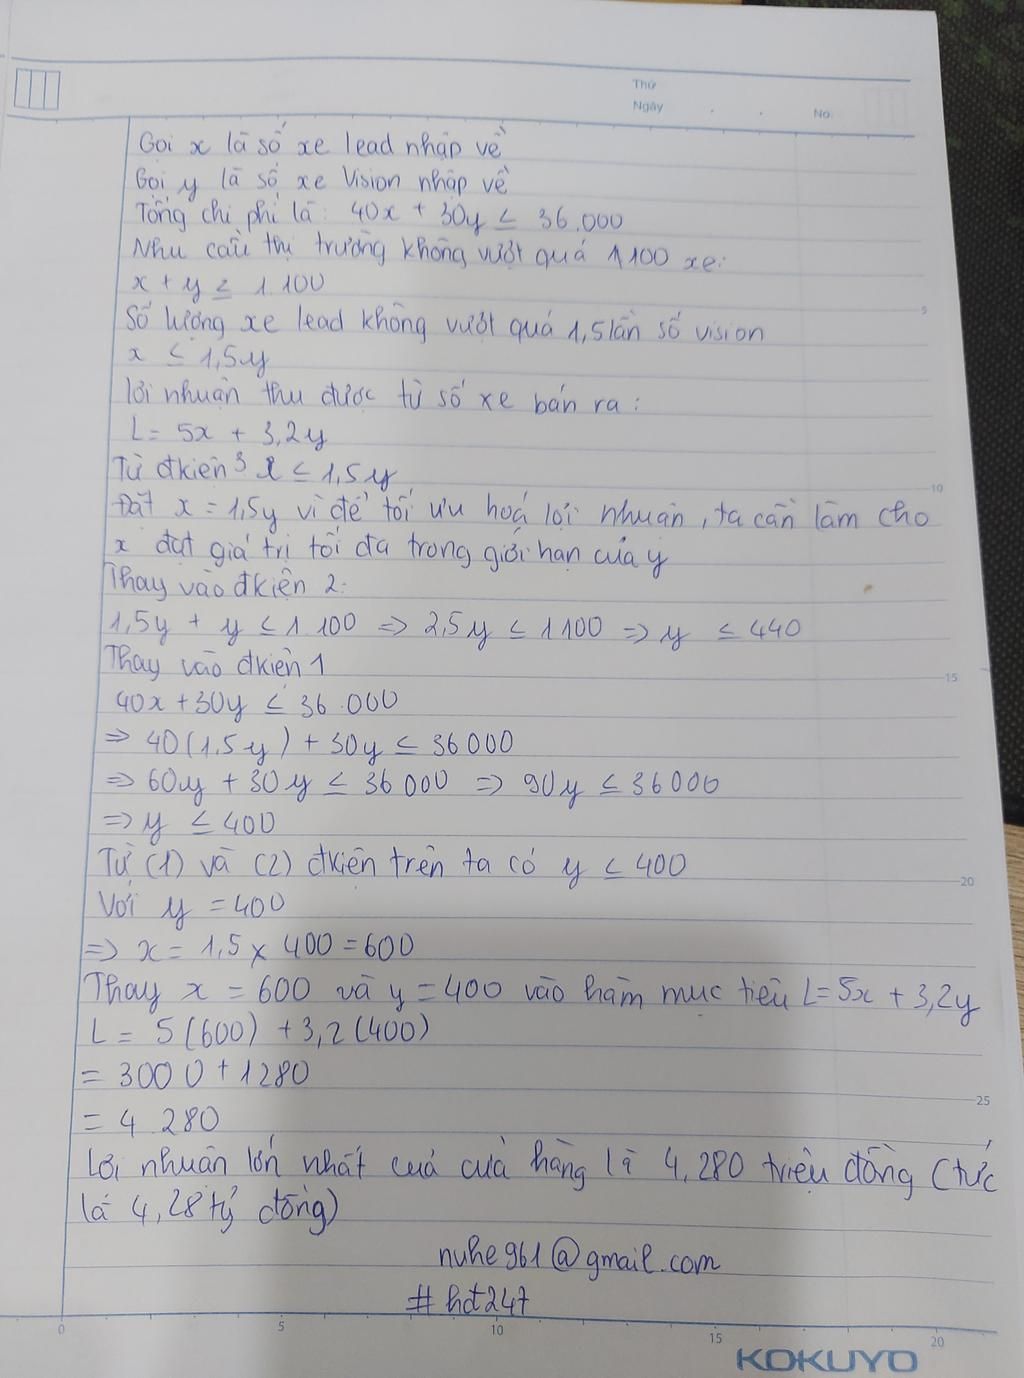 Thứ
Ngày
No.
Gọi x là số xe lead nhập về
Gọi y là số xe Vision nhập về
Tổng chi phí là: 40x + 30y ≤ 36.000
Nhu cầu thị trường không vượt quá 1100 xe:
x + y ≤ 1.100
Số lượng xe lead không vượt quá 1,5 lần số vision
x ≤ 1,5y
lợi nhuận thu được từ số xe bán ra:
L = 5x + 3,2y
Từ đkiện 3 x ≤ 1,5y
Đặt x = 1,5y vì để tối ưu hoá lợi nhuận, ta cần làm cho
x đạt giá trị tối đa trong giới hạn của y
Thay vào đkiện 2:
1,5y + y ≤ 1.100 => 2,5y ≤ 1100 => y ≤ 440
Thay vào đkiện 1
40x + 30y ≤ 36.000
=> 40(1,5y) + 30y ≤ 36000
=> 60y + 30y ≤ 36000 => 90y ≤ 36000
=> y ≤ 400
Từ (1) và (2) đkiện trên ta có y ≤ 400
Với y = 400
=> x = 1,5 x 400 = 600
Thay x = 600 và y = 400 vào hàm mục tiêu L = 5x + 3,2y
L = 5(600) + 3,2(400)
= 3000 + 1280
= 4.280
Lợi nhuận lớn nhất cuả cửa hàng là 4,280 triệu đồng (tức
là 4,28 tỷ đồng)
nuhe961@gmail.com
#hd247
5
10
15
20
25
0 5 10 15 20
KOKUYO